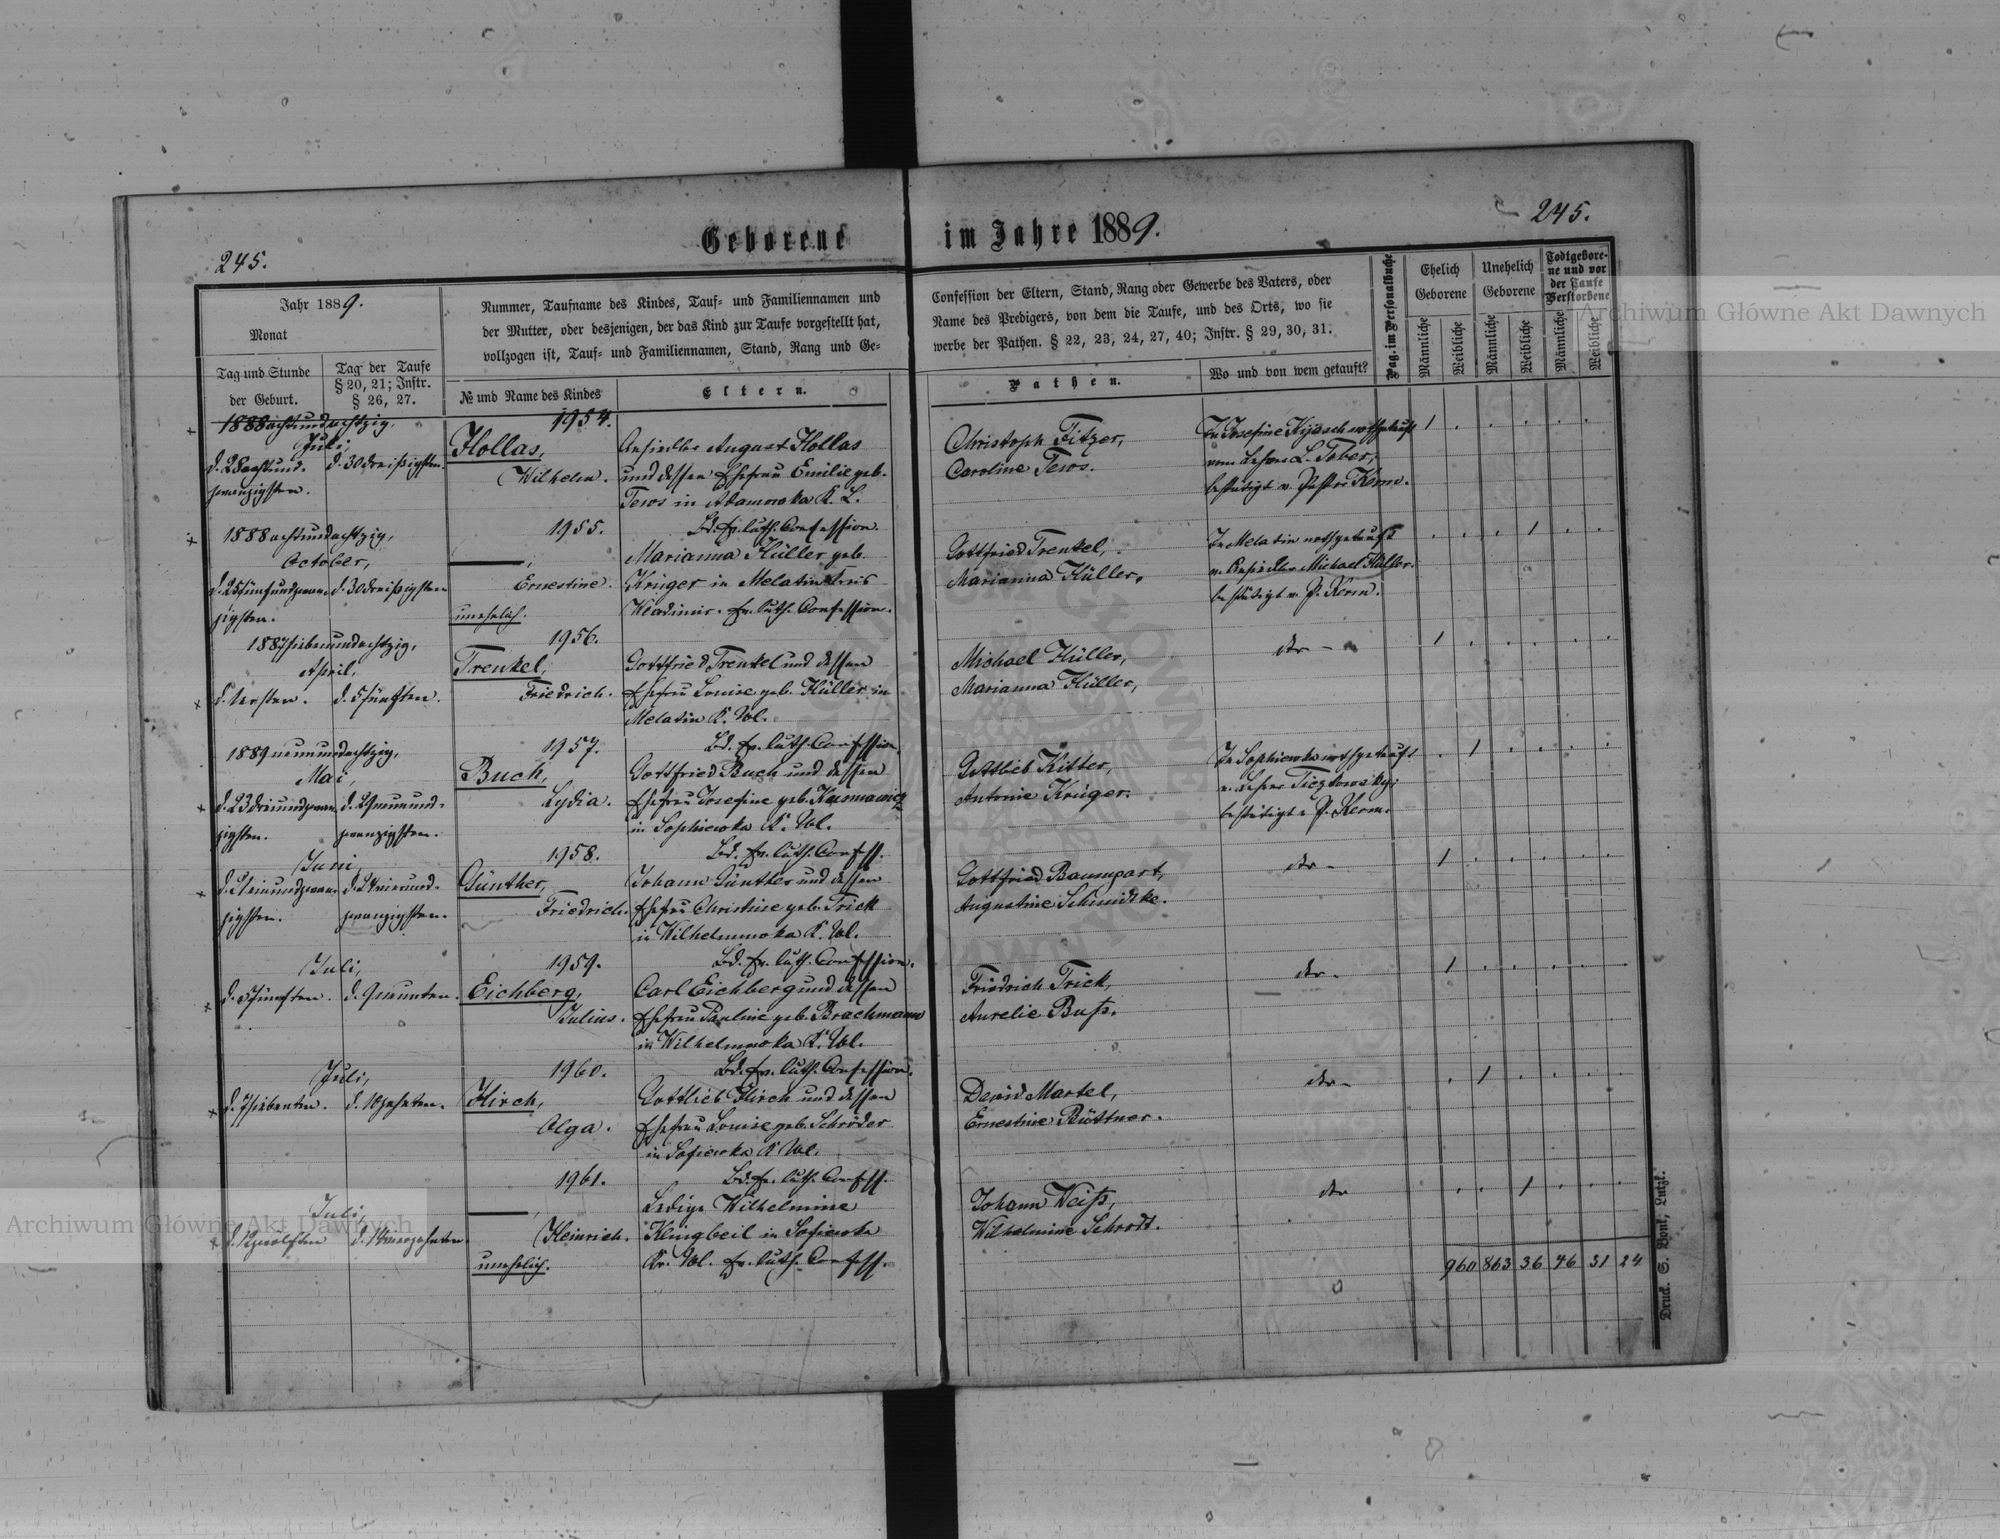 245.
Geborene im Jahre 1889.
245.
Jahr 1889.
Monat
Tag und Stunde
der Geburt.
Tag der Taufe
§ 20, 21; Instr.
§ 26, 27.
Nummer, Taufname des Kindes, Tauf- und Familiennamen und
der Mutter, oder desjenigen, der das Kind zur Taufe vorgestellt hat,
vollzogen ist, Tauf- und Familiennamen, Stand, Rang und Ge-
№ und Name des Kindes
Eltern.
Confession der Eltern, Stand, Rang oder Gewerbe des Vaters, oder
Name des Predigers, von dem die Taufe, und des Orts, wo sie
werbe der Pathen. § 22, 23, 24, 27, 40; Instr. § 29, 30, 31.
Pathen.
Wo und von wem getauft?
Pag. im Personalbuche
Ehelich
Geborene
Unehelich
Geborene
Todtgebore-
ne und vor
der Taufe
Verstorbene
Männliche
Weibliche
Männliche
Weibliche
Männliche
Weibliche
1888 achtundachtzig,
Juli,
d. 28 achtund-
zwanzigsten.
d. 30 dreißigsten.
1954.
Hollas,
Wilhelm.
Ansiedler August Hollas
und dessen Ehefrau Emilie geb.
Tews in Adamowka K. L.
Bd. ev. luth. Confession.
Christoph Fitzer,
Caroline Tews.
In Josefine nothgetauft
vom Lehrer L. Tober,
bestätigt v. Pastor Kerm.
1
1888 achtundachtzig,
October,
d. 25 fünfundzwan-
zigsten.
d. 30 dreißigsten
1955.
—,
Ernestine.
unehelich.
Marianna Hüller geb.
Krüger in Melatin Kreis
Wladimir. ev. luth. Confession.
Gottfried Trenkel,
Marianna Hüller.
In Melatin nothgetauft
v. Ansiedler Michael Hüller.
bestätigt v. P. Kerm.
1
1887 siebenundachtzig,
April,
d. 1 ersten.
d. 5 fünften.
1956.
Trenkel,
Friedrich.
Gottfried Trenkel und dessen
Ehefrau Louise geb. Hüller in
Melatin K. Wl.
Bd. ev. luth. Confession.
Michael Hüller,
Marianna Hüller,
dto -
1
1889 neunundachtzig,
Mai,
d. 23 dreiundzwan-
zigsten.
d. 29 neunund-
zwanzigsten.
1957.
Buch,
Lydia.
Gottfried Buch und dessen
Ehefrau Josefine geb. Kusmawicz
in Sophiewka K. Wl.
Bd. ev. luth. Confess.
Gottlieb Kitter,
Antonie Krüger.
In Sophiewka nothgetauft
v. Lehrer
bestätigt v. P. Kerm.
1
Juni,
d. 21 einundzwan-
zigsten.
d. 24 vierund-
zwanzigsten.
1958.
Günther,
Friedrich.
Johann Günther und dessen
Ehefrau Christine geb. Trick
in Wilhelmowka K. Wl.
Bd. ev. luth. Confession.
Gottfried Baumgart,
Augustine Schmidtke.
dto -
1
Juli,
d. 5 fünften.
d. 9 neunten.
1959.
Eichberg,
Julius.
Carl Eichberg und dessen
Ehefrau Pauline geb. Brachmann
in Wilhelmowka K. Wl.
Bd. ev. luth. Confession.
Friedrich Trick,
Aurelie Buß.
dto -
1
Juli,
d. 7 siebenten.
d. 10 zehnten.
1960.
Hirch,
Olga.
Gottlieb Hirch und dessen
Ehefrau Louise geb. Schröder
in Sofiewka K. Wl.
Bd. ev. luth. Confess.
David Martel,
Ernestine Büttner.
dto -
1
Juli,
d. 12 zwölften
d. 14 vierzehnten.
1961.
—,
Heinrich.
unehelich.
Ledige Wilhelmine
Klingbeil in Sofiewka
Kr. Wl. ev. luth. Confess.
Johann Weiß,
Wilhelmine Schrodt.
dto
1
960 863 36 46 31 24
Druck. S. Bonk, Lutzk.
Archiwum Główne Akt Dawnych
Archiwum Główne Akt Dawnych